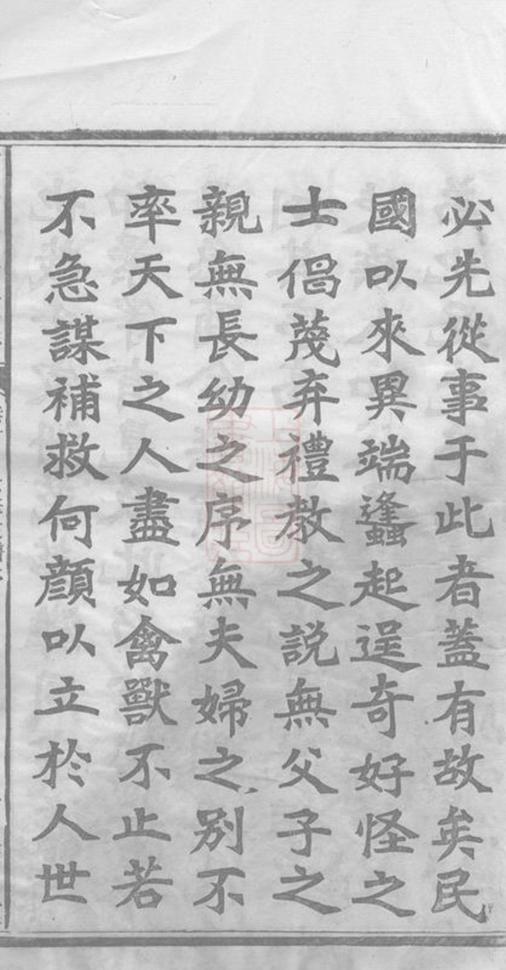 必先從事于此者蓋有故矣民
國以來異端蠭起逞奇好怪之
士倡蔑弃禮教之說無父子之
親無長幼之序無夫婦之別不
率天下之人盡如禽獸不止若
不急謀補救何顔以立於人世